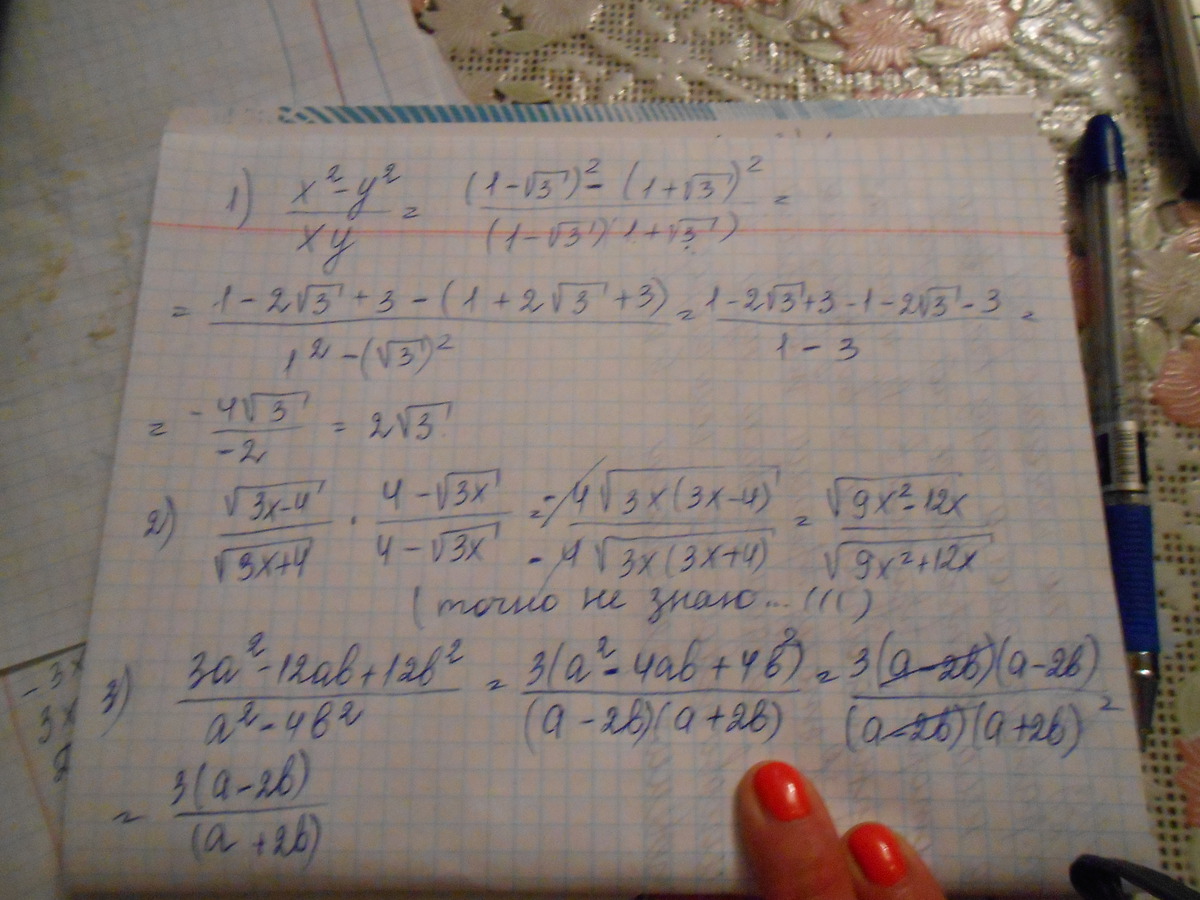 1) (x² - y²)/(xy) = ((1-√3)² - (1+√3)²)/((1-√3)(1+√3)) =
= (1 - 2√3 + 3 - (1 + 2√3 + 3))/(1² - (√3)²) = (1-2√3+3-1-2√3-3)/(1 - 3) =
= (-4√3)/(-2) = 2√3
2) √(3x-4)/√(3x+4) · (4-√3x)/(4-√3x) = (-4√(3x(3x-4)))/(-4√(3x(3x+4))) = √(9x²-12x)/√(9x²+12x)
(точно не знаю... (((()
3) (3a²-12ab+12b²)/(a²-4b²) = (3(a²-4ab+4b²))/((a-2b)(a+2b)) = (3(a-2b)(a-2b))/((a-2b)(a+2b)) =
= (3(a-2b))/((a+2b))
-3x
3x